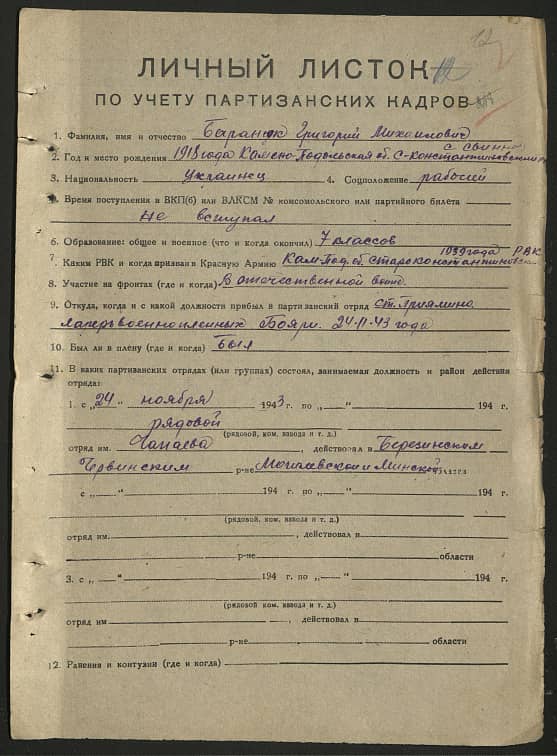 12
ЛИЧНЫЙ ЛИСТОК
ПО УЧЕТУ ПАРТИЗАНСКИХ КАДРОВ
1. Фамилия, имя и отчество Баранюк Григорий Михайлович
с. Свинно
2. Год и место рождения 1918 года Камено-Подольская об. С-Константиновский р
3. Национальность украинец 4. Соцположение рабочий
5. Время поступления в ВКП(б) или ВЛКСМ № комсомольского или партийного билета
не вступал
6. Образование: общее и военное (что и когда окончил) 7 классов
1939 года РВК
7. Каким РВК и когда призван в Красную Армию Кам-Под. об. Староконстантиновск
8. Участие на фронтах (где и когда) В отечественной войне
9. Откуда, когда и с какой должности прибыл в партизанский отряд ст. Приямино
лагерь военнопленных Бояры. 24-11-43 года
10. Был ли в плену (где и когда) Был
11. В каких партизанских отрядах (или группах) состоял, занимаемая должность и район действия
отряда:
1. с „24" ноября 1943 г. по „—" 194 г.
рядовой
(рядовой, ком. взвода и т. д.)
отряд им. Чапаева, действовал в Березинским
Червинским р-не Могилевской и Минской области
с „—" 194 г. по „—" 194 г.
(рядовой, ком. взвода и т. д.)
отряд им. , действовал в
р-не области
3. с „—" 194 г. по „—" 194 г.
(рядовой, ком. взвода и т. д.)
отряд им , действовал в
р-не области
12. Ранения и контузии (где и когда)